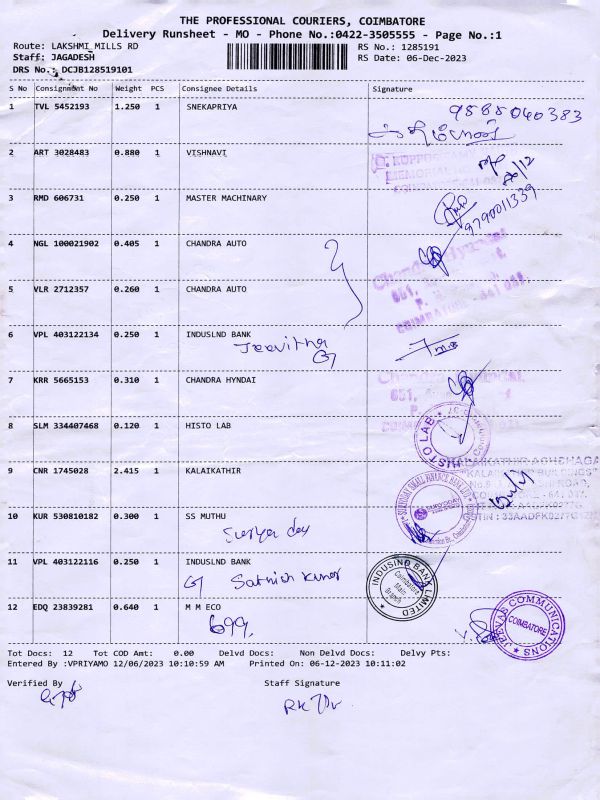 THE PROFESSIONAL COURIERS, COIMBATORE
Delivery Runsheet - MO - Phone No.:0422-3505555 - Page No.:1
Route: LAKSHMI MILLS RD
RS No.: 1285191
Staff: JAGADESH
RS Date: 06-Dec-2023
DRS No.: DCJB128519101
S No Consignment No Weight PCS Consignee Details Signature
1 TVL 5452193 1.250 1 SNEKAPRIYA
9588040383
2 ART 3028483 0.880 1 VISHNAVI
3 RMD 606731 0.250 1 MASTER MACHINARY
9790011339
4 NGL 100021902 0.405 1 CHANDRA AUTO
5 VLR 2712357 0.260 1 CHANDRA AUTO
6 VPL 403122134 0.250 1 INDUSLND BANK
Jeevitha
7 KRR 5665153 0.310 1 CHANDRA HYNDAI
8 SLM 334407468 0.120 1 HISTO LAB
HISTO LAB
9 CNR 1745028 2.415 1 KALAIKATHIR
10 KUR 530810182 0.300 1 SS MUTHU
Suriya day
11 VPL 403122116 0.250 1 INDUSLND BANK
Sathish Kumar
INDUSIND BANK LIMITED
Coimbatore Main Branch
12 EDQ 23839281 0.640 1 M M ECO
699,
COMMUNICATIONS
COIMBATORE
Tot Docs: 12 Tot COD Amt: 0.00 Delvd Docs: Non Delvd Docs: Delvy Pts:
Entered By :VPRIYAMO 12/06/2023 10:10:59 AM Printed On: 06-12-2023 10:11:02
Verified By Staff Signature